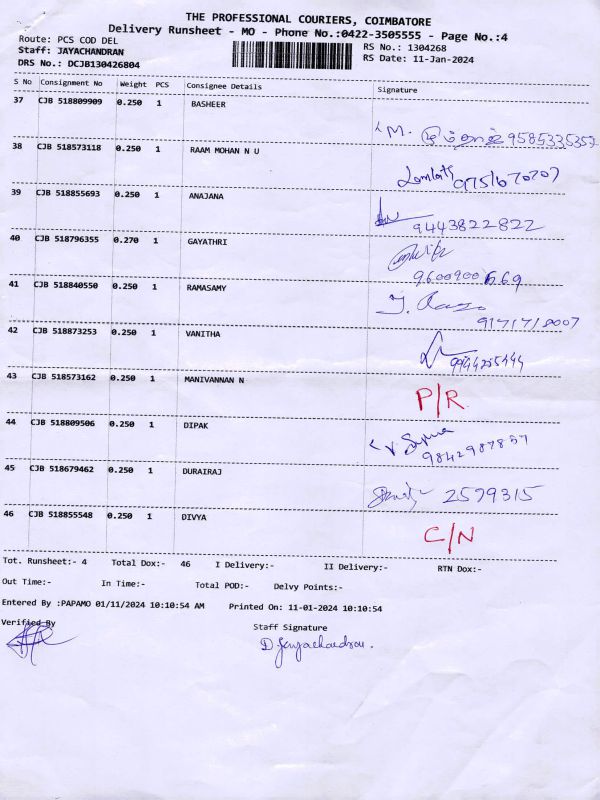 THE PROFESSIONAL COURIERS, COIMBATORE
Delivery Runsheet - MO - Phone No.:0422-3505555 - Page No.:4
Route: PCS COD DEL
RS No.: 1304268
Staff: JAYACHANDRAN
RS Date: 11-Jan-2024
DRS No.: DCJB130426804
S No Consignment No Weight PCS Consignee Details Signature
37 CJB 518809909 0.250 1 BASHEER
M. 9585335357
38 CJB 518573118 0.250 1 RAAM MOHAN N U
39 CJB 518855693 0.250 1 ANAJANA
9443822822
40 CJB 518796355 0.270 1 GAYATHRI
9600900569
41 CJB 518840550 0.250 1 RAMASAMY
42 CJB 518873253 0.250 1 VANITHA
43 CJB 518573162 0.250 1 MANIVANNAN N
P/R
44 CJB 518809506 0.250 1 DIPAK
9842987857
45 CJB 518679462 0.250 1 DURAIRAJ
2579315
46 CJB 518855548 0.250 1 DIVYA
C/N
Tot. Runsheet:- 4 Total Dox:- 46 I Delivery:- II Delivery:- RTN Dox:-
Out Time:- In Time:- Total POD:- Delvy Points:-
Entered By :PAPAMO 01/11/2024 10:10:54 AM Printed On: 11-01-2024 10:10:54
Verified By Staff Signature
D. Jeyachandran.